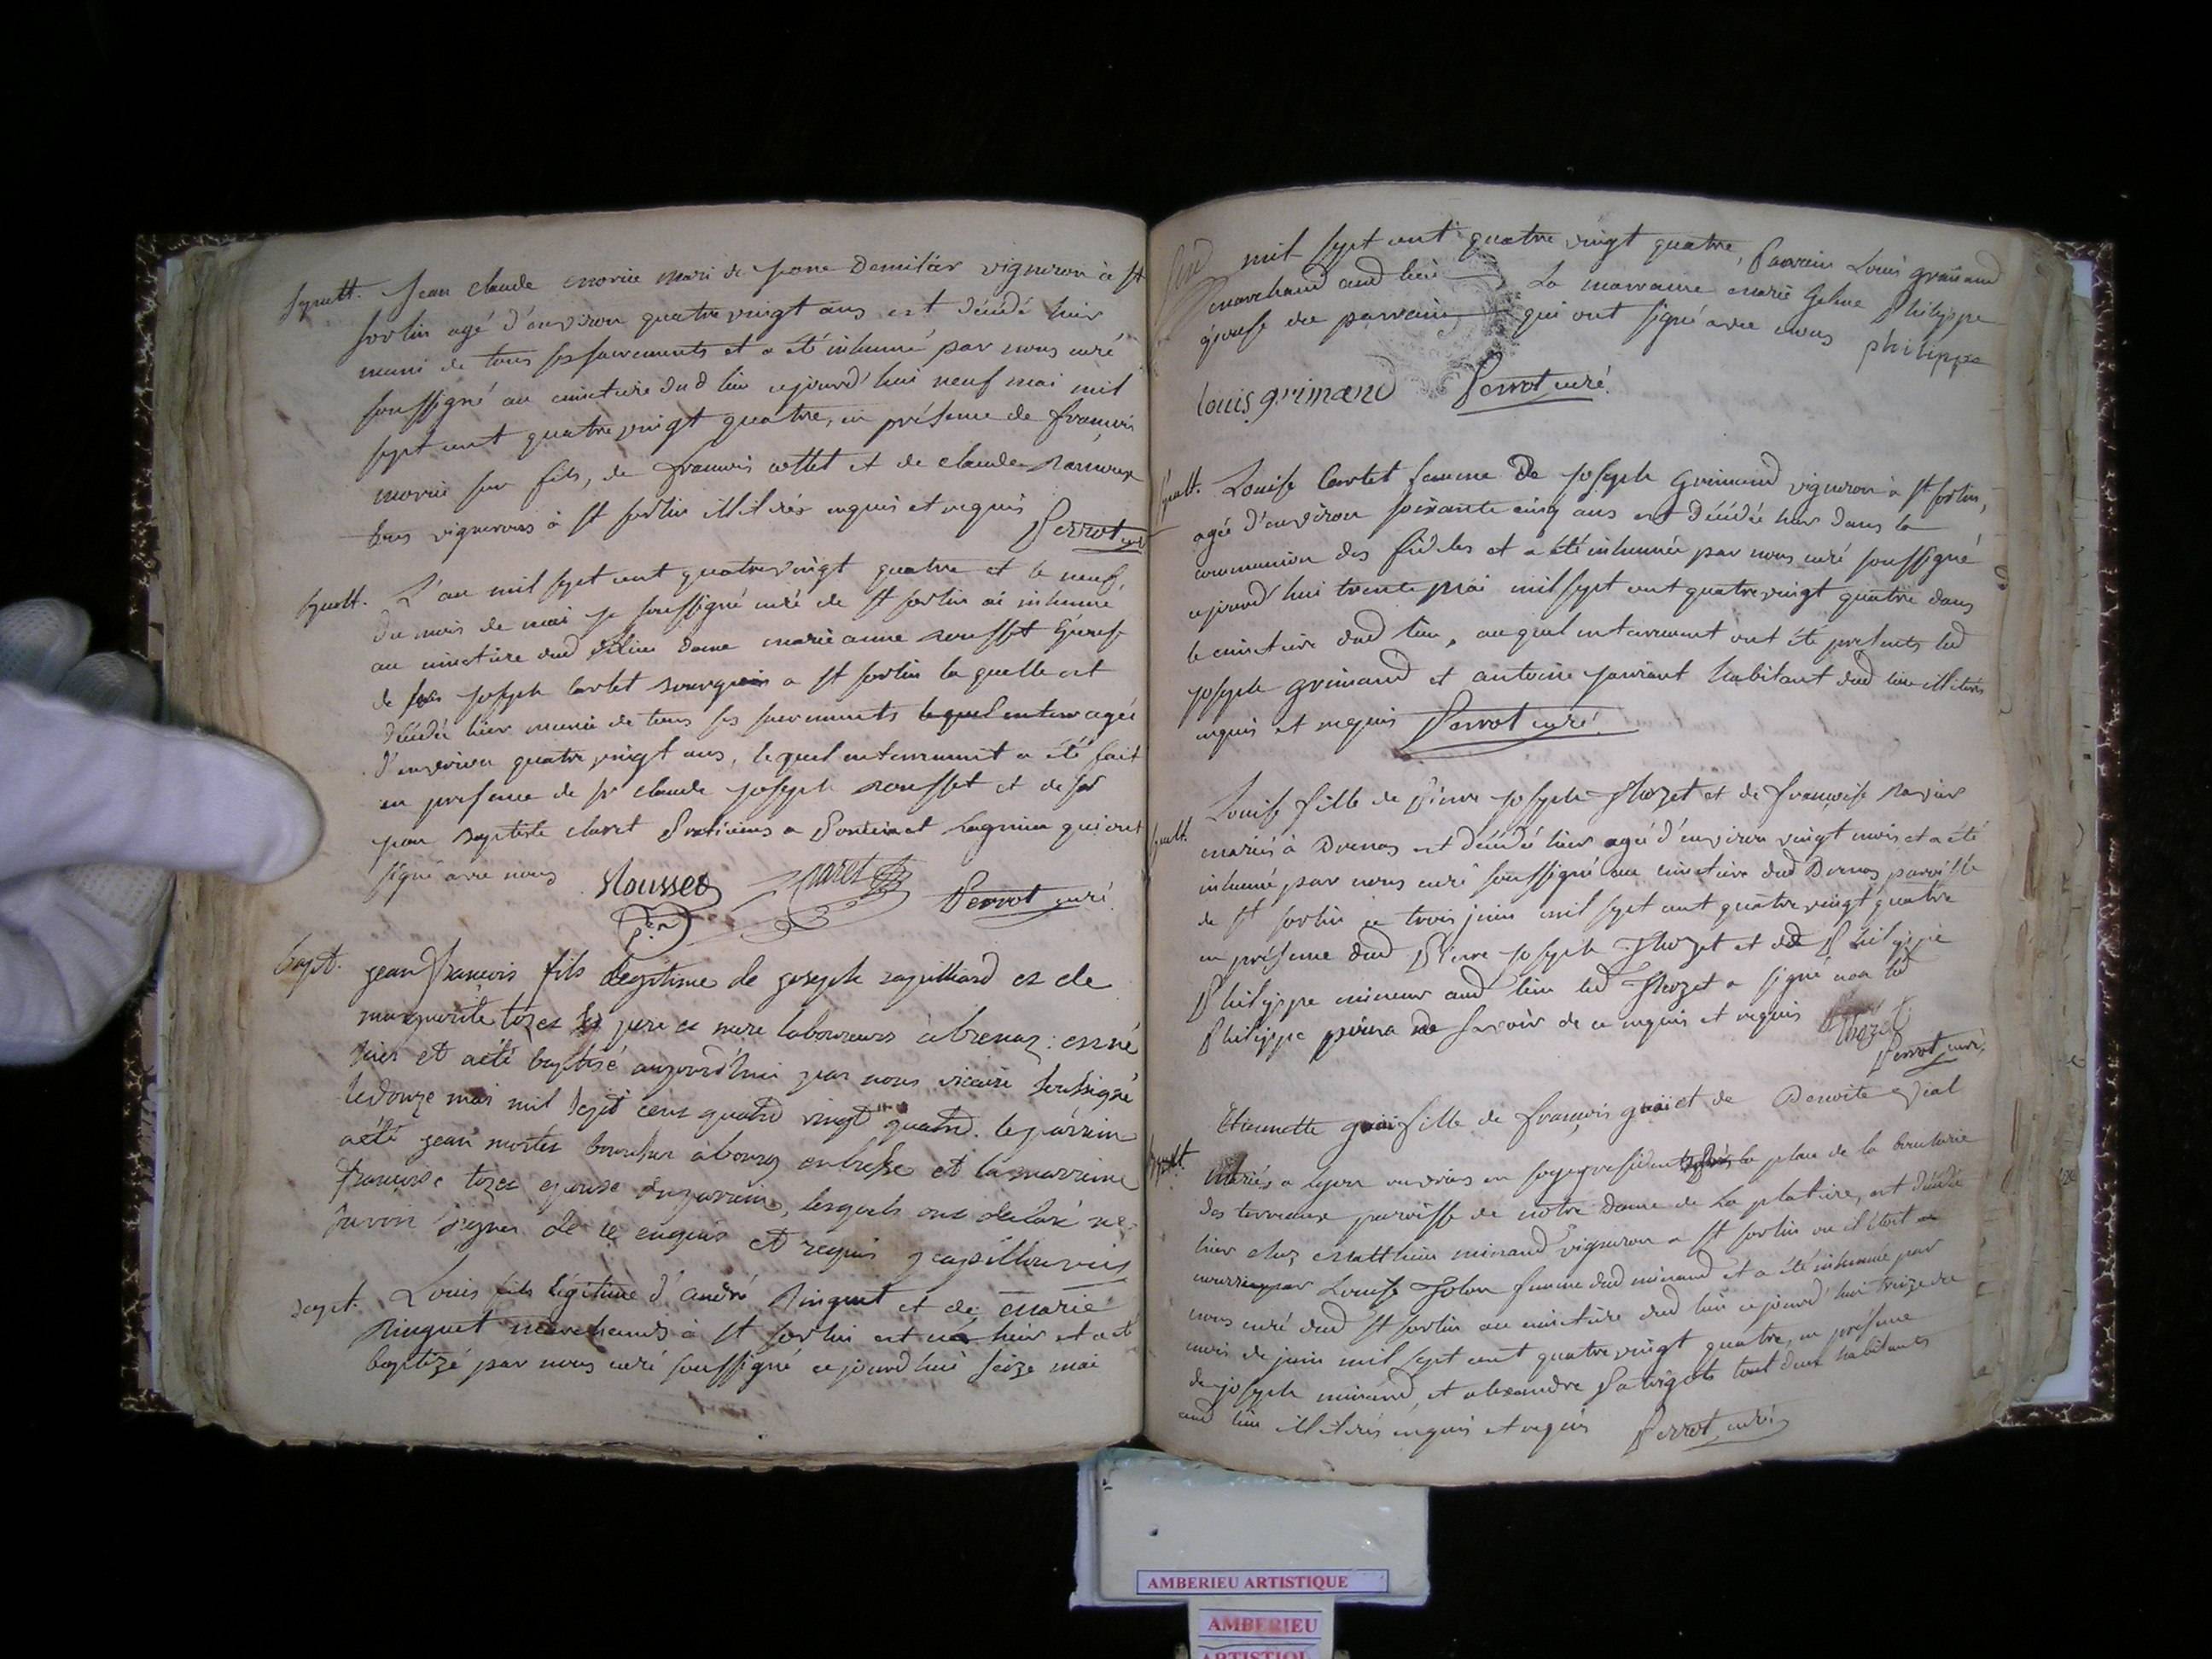 Sepult. Jean claude morin mari de Jeane Demilier vigneron à St
sorlin agé d'environ quatre vingt ans est décédé hier
muni de tous ses sacrements et a été inhumé par nous curé
soussigné au cimetiere dud lieu cejourd'hui neuf mai mil
sept cent quatre vingt quatre, en présence de françois
morin son fils, de françois collet et de claude
tous vignerons à St sorlin illitérés enquis et requis Perrot curé
Sepult. L'an mil sept cent quatre vingt quatre et le neuf
du mois de mai je soussigné curé de St sorlin ai inhumé
au cimetière dud lieu dame marie anne rousset Epouse
de Joseph Cartet bourgeois a St sorlin laquelle est
décédée hier munie de tous ses sacrements lequel enterr agée
d'environ quatre vingt ans, lequel enterrement a été fait
en presence de Sr claude joseph rousset et de Sr
jean baptiste claret Praticiens a Poncin et Lagnieu qui ont
signé avec nous Rousset Claret Perrot curé
bapt. jean françois fils legitime de joseph rapilliard et de
marguerite tozet ses pere et mere laboureurs à brenaz : est né
hier et a été baptisé aujourd'hui par nous vicaire soussigné
le douze mai mil sept cent quatre vingt quatre. le parrain
a été jean mortier boucher à bourg en bresse et la marraine
françoise tozet epouse du parrain, lesquels ont declaré ne
savoir signer de ce enquis et requis
bapt. Louis fils légitime d'andré Ringuet et de marie
Ringuet marchands à St sorlin est né hier et a été
baptizé par nous curé soussigné cejourd'hui seize mai
mil sept cent quatre vingt quatre, Parrain Louis grimand
marchand aud lieu La marraine marie Philippe
épouse du parrain qui ont signé avec nous philippe
louis grimand Perrot curé
Sepult. Louise Cartet femme De joseph Grimand vigneron à St sorlin,
agée d'environ soixante cinq ans est décédée hier dans la
communion des fidèles et a été inhumée par nous curé soussigné
cejourd'hui trente mai mil sept cent quatre vingt quatre dans
le cimetiere dud lieu, auquel enterrement ont été presents led
joseph grimand et antoine habitant dud lieu illitérés
enquis et requis Perrot curé
Louise fille de Pierre joseph Thozet et de françoise
Sepult. mariés à Brenas est décédée hier agée d'environ vingt mois et a été
inhumé par nous curé soussigné au cimetiere dud Brenas paroisse
de St sorlin ce trois juin mil sept cent quatre vingt quatre
en présence dud Pierre joseph Thozet et de Philippe
Philippe mineur aud lieu led Thozet a signé non led
Philippe pour ne savoir de ce enquis et requis Thozet
Perrot curé
Etiennette fille de françois et de Benoite Vial
Sepult. mariés a lyon ouvriers en soye place de la boucherie
des terreaux paroisse de notre Dame de La platiere, est décédée
hier chez matthieu minand vigneron a St sorlin ou il étoit en
nourri par Louise femme dud minand et a été inhumée par
nous curé dud St sorlin au cimetière dud lieu cejourd'hui treize du
mois de juin mil sept cent quatre vingt quatre, en présence
de joseph minand, et alexandre tout deux habitants
aud lieu illitérés enquis et requis Perrot curé
AMBERIEU ARTISTIQUE
AMBERIEU
ARTISTIQUE